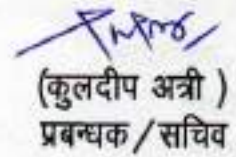 (कुलदीप अत्री )
प्रबन्धक/सचिव